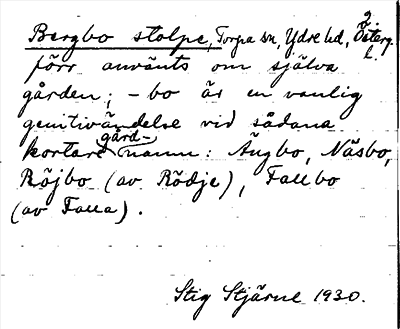 Bergbo stolpe, Torpa sn, Ydre hd, Österg. l.
förr använts om själva
gården; - bo är en vanlig
genitivändelse vid sådana
kortare gård-namn: Ängbo, Näsbo,
Röjbo (av Rödje), Fallbo
(av Falla).
Stig Stjärne 1930.